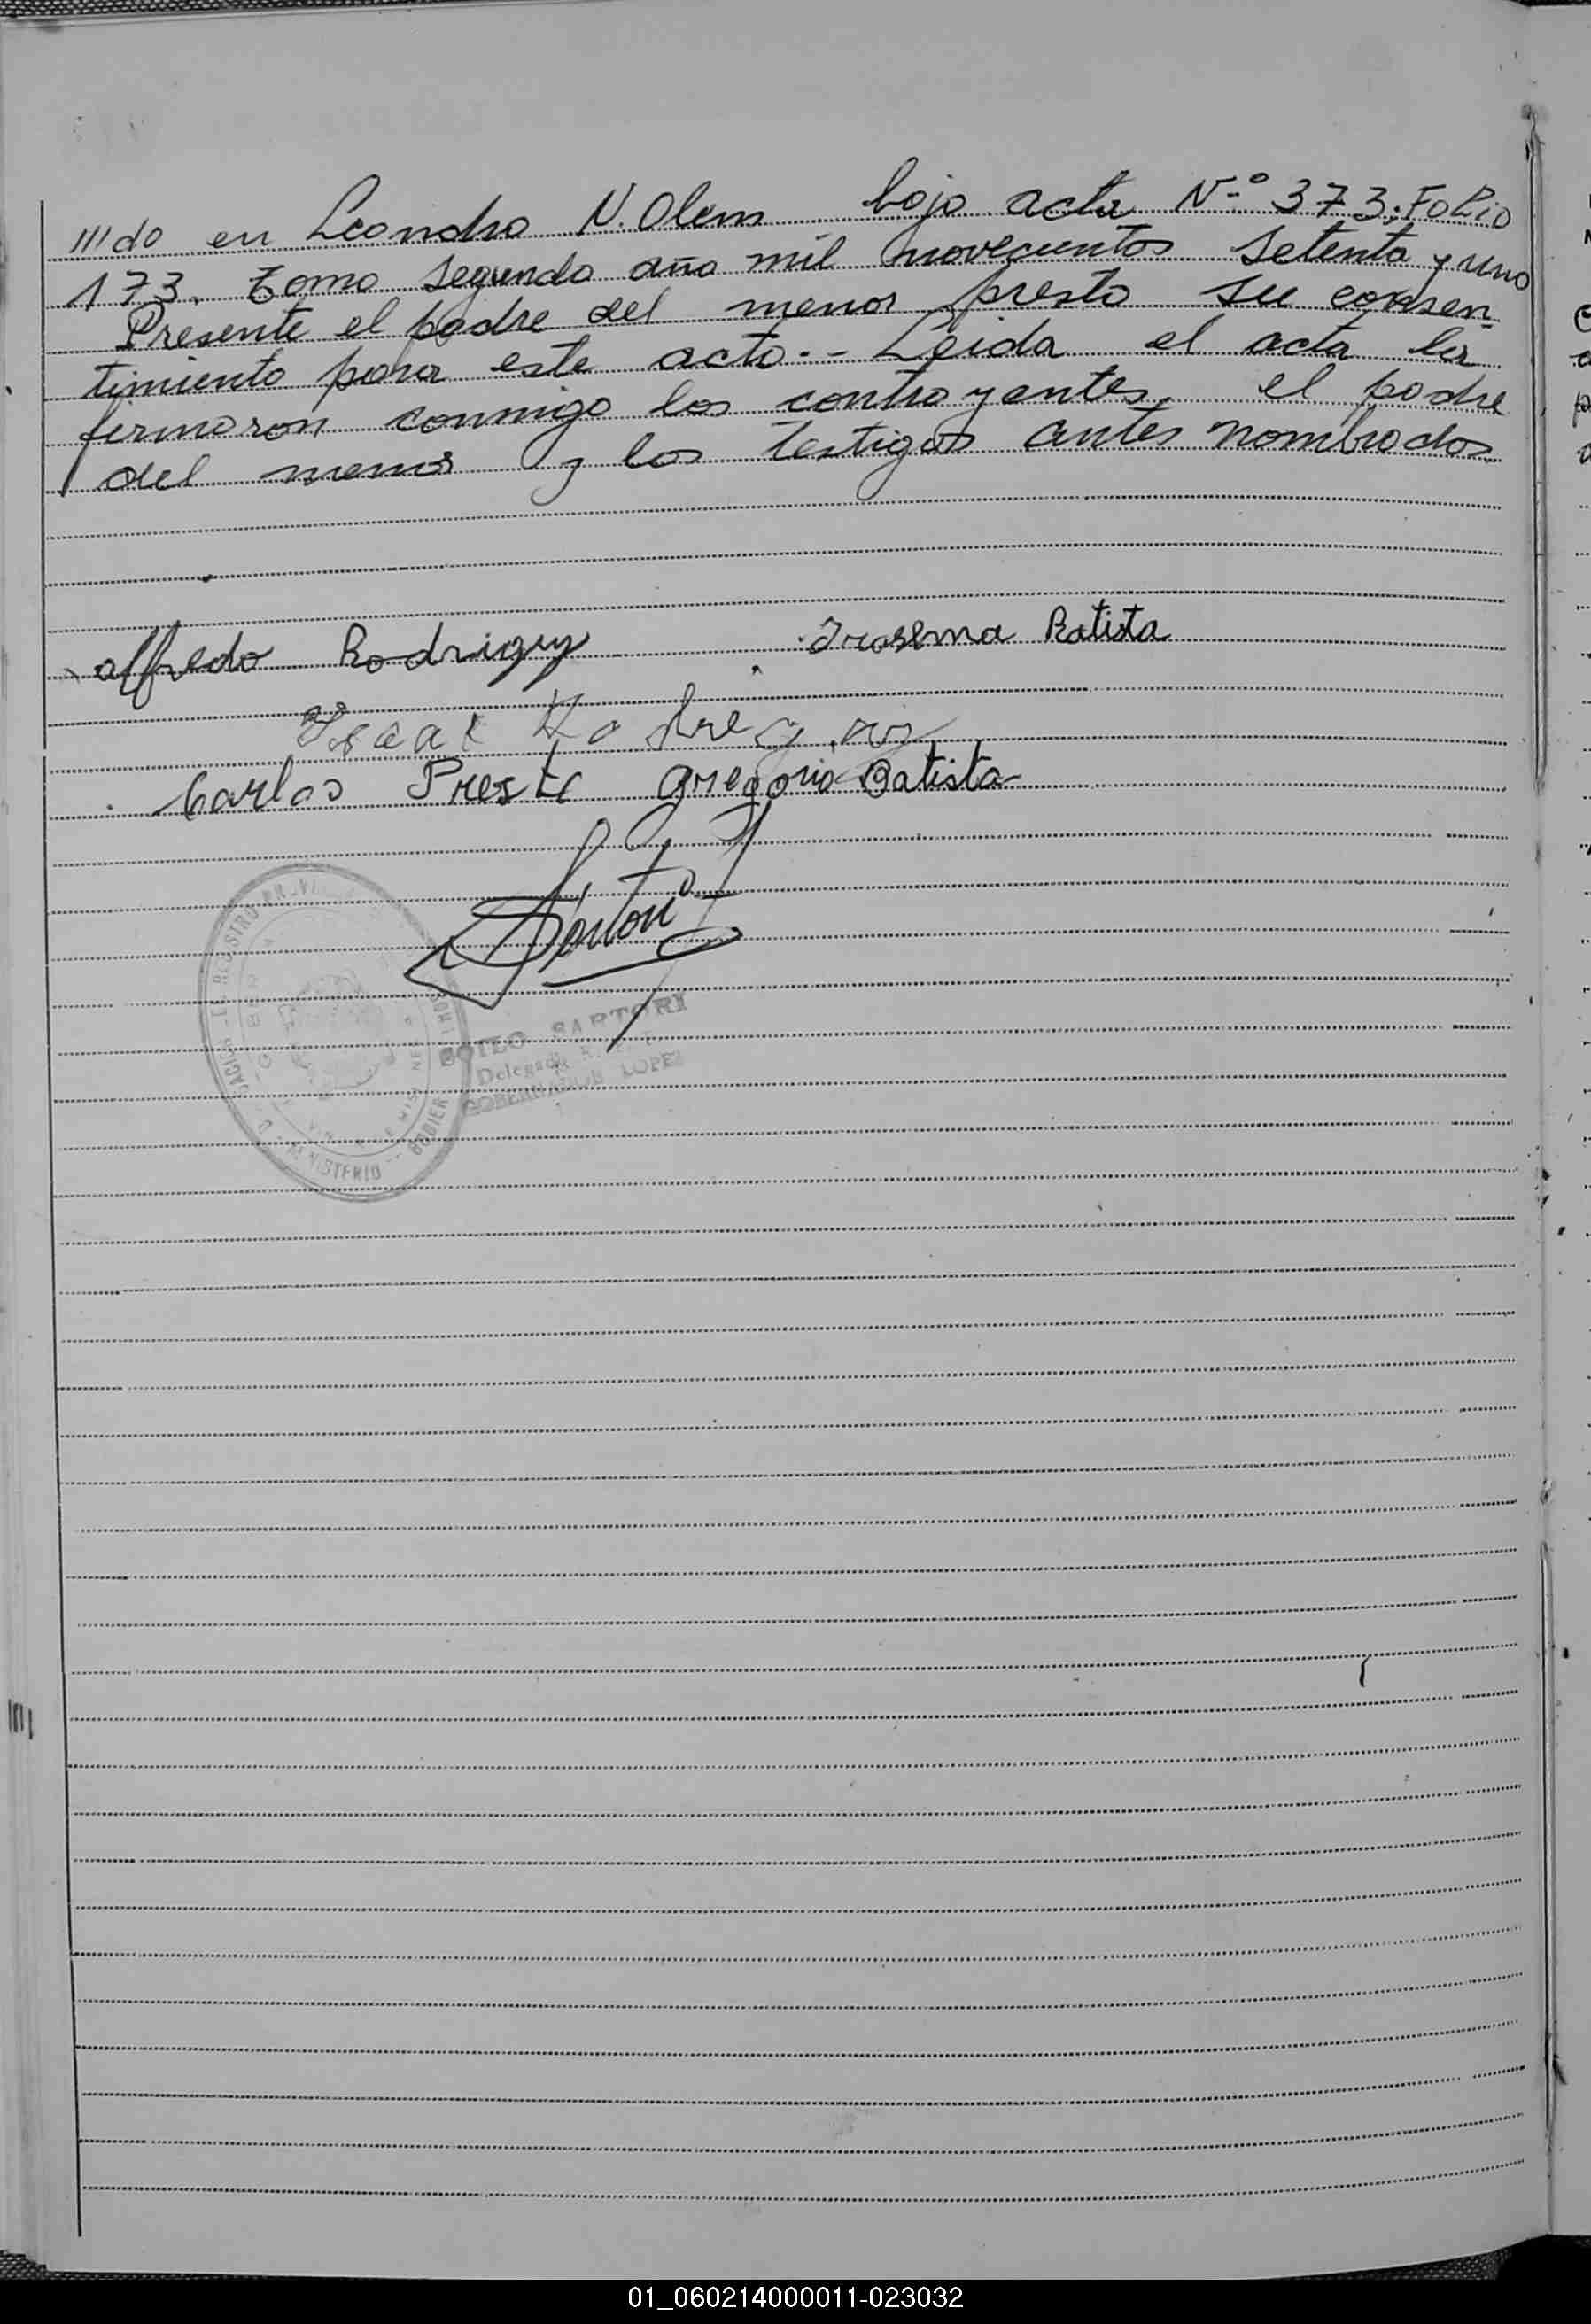 ///do en Leandro N. Alem bajo acta Nº 373. Folio
173. Tomo Segundo año mil novecientos setenta y uno
Presente el padre del menor presta su consen-
timiento para este acto.- Leida el acta la
firmaron conmigo los contrayentes, el padre
del menor y los testigos antes nombrados
Alfredo Rodriguez Irosema Batista
Isaac Rodriguez
Carlos Preste Gregorio Batista
SOTEO SARTORI
Delegado
GOBERNADOR LOPEZ
MINISTERIO
01_060214000011-023032